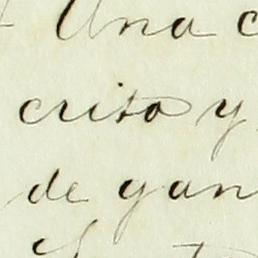 Una c
criso y
de gan